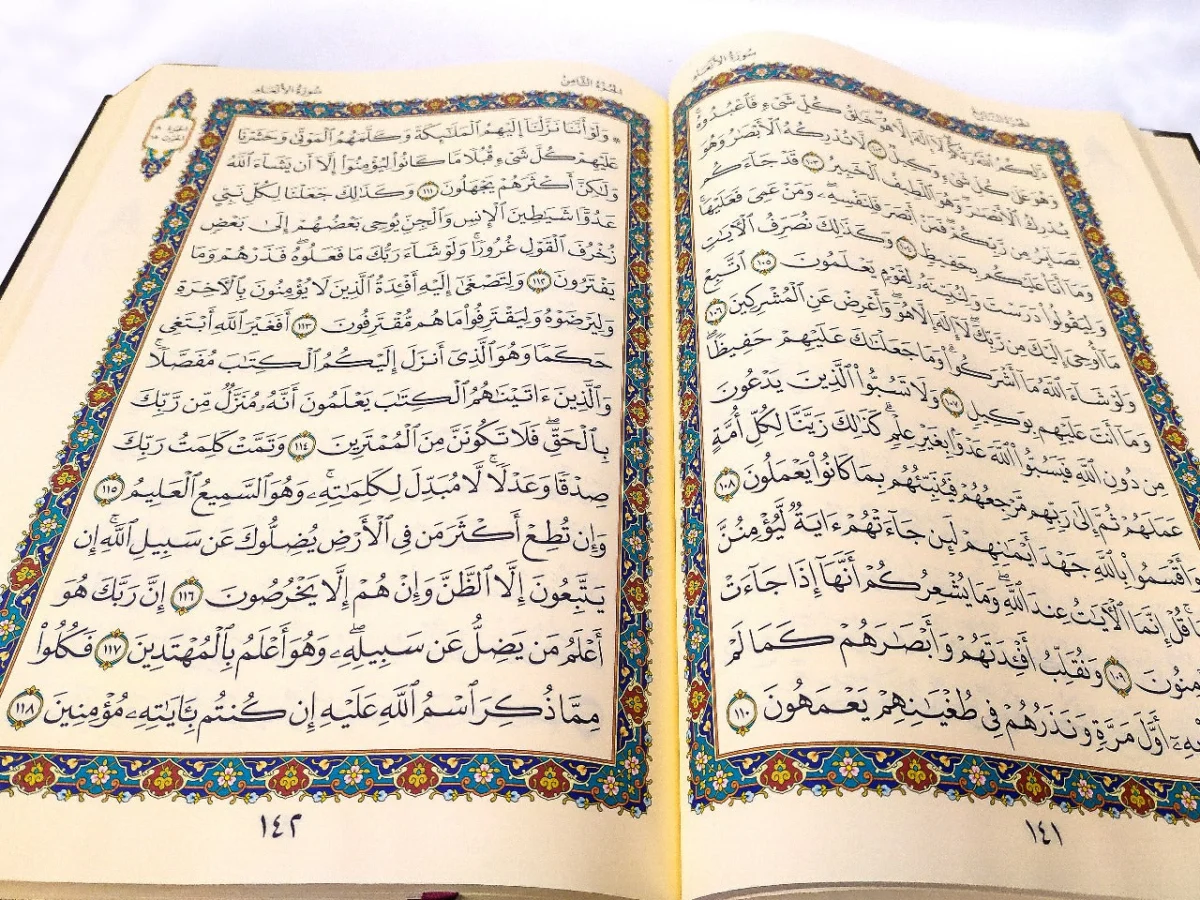 سُورَةُ الأَنْعَامِ
الجُزْءُ السَّابِعُ
ذَٰلِكُمُ ٱللَّهُ رَبُّكُمْ لَآ إِلَٰهَ إِلَّا هُوَ خَٰلِقُ كُلِّ شَىْءٍ فَٱعْبُدُوهُ
وَهُوَ عَلَىٰ كُلِّ شَىْءٍ وَكِيلٌ ١٠٢ لَّا تُدْرِكُهُ ٱلْأَبْصَٰرُ وَهُوَ
يُدْرِكُ ٱلْأَبْصَٰرَ وَهُوَ ٱللَّطِيفُ ٱلْخَبِيرُ ١٠٣ قَدْ جَآءَكُم
بَصَآئِرُ مِن رَّبِّكُمْ فَمَنْ أَبْصَرَ فَلِنَفْسِهِۦ وَمَنْ عَمِىَ فَعَلَيْهَا
وَمَآ أَنَا۠ عَلَيْكُم بِحَفِيظٍ ١٠٤ وَكَذَٰلِكَ نُصَرِّفُ ٱلْـَٔايَٰتِ
وَلِيَقُولُوا۟ دَرَسْتَ وَلِنُبَيِّنَهُۥ لِقَوْمٍ يَعْلَمُونَ ١٠٥ ٱتَّبِعْ
مَآ أُوحِىَ إِلَيْكَ مِن رَّبِّكَ لَآ إِلَٰهَ إِلَّا هُوَ وَأَعْرِضْ عَنِ ٱلْمُشْرِكِينَ ١٠٦
وَلَوْ شَآءَ ٱللَّهُ مَآ أَشْرَكُوا۟ وَمَا جَعَلْنَٰكَ عَلَيْهِمْ حَفِيظًا
وَمَآ أَنتَ عَلَيْهِم بِوَكِيلٍ ١٠٧ وَلَا تَسُبُّوا۟ ٱلَّذِينَ يَدْعُونَ
مِن دُونِ ٱللَّهِ فَيَسُبُّوا۟ ٱللَّهَ عَدْوًۢا بِغَيْرِ عِلْمٍ كَذَٰلِكَ زَيَّنَّا لِكُلِّ أُمَّةٍ
عَمَلَهُمْ ثُمَّ إِلَىٰ رَبِّهِم مَّرْجِعُهُمْ فَيُنَبِّئُهُم بِمَا كَانُوا۟ يَعْمَلُونَ ١٠٨
وَأَقْسَمُوا۟ بِٱللَّهِ جَهْدَ أَيْمَٰنِهِمْ لَئِن جَآءَتْهُمْ ءَايَةٌ لَّيُؤْمِنُنَّ
قُلْ إِنَّمَا ٱلْـَٔايَٰتُ عِندَ ٱللَّهِ وَمَا يُشْعِرُكُمْ أَنَّهَآ إِذَا جَآءَتْ
مِنُونَ ١٠٩ وَنُقَلِّبُ أَفْـِٔدَتَهُمْ وَأَبْصَٰرَهُمْ كَمَا لَمْ
بِهِۦٓ أَوَّلَ مَرَّةٍ وَنَذَرُهُمْ فِى طُغْيَٰنِهِمْ يَعْمَهُونَ ١١٠
١٤١
الجُزْءُ الثَّامِنُ
سُورَةُ الأَنْعَامِ
۞ وَلَوْ أَنَّنَا نَزَّلْنَآ إِلَيْهِمُ ٱلْمَلَٰٓئِكَةَ وَكَلَّمَهُمُ ٱلْمَوْتَىٰ وَحَشَرْنَا
عَلَيْهِمْ كُلَّ شَىْءٍ قُبُلًا مَّا كَانُوا۟ لِيُؤْمِنُوٓا۟ إِلَّآ أَن يَشَآءَ ٱللَّهُ
وَلَٰكِنَّ أَكْثَرَهُمْ يَجْهَلُونَ ١١١ وَكَذَٰلِكَ جَعَلْنَا لِكُلِّ نَبِىٍّ
عَدُوًّا شَيَٰطِينَ ٱلْإِنسِ وَٱلْجِنِّ يُوحِى بَعْضُهُمْ إِلَىٰ بَعْضٍ
زُخْرُفَ ٱلْقَوْلِ غُرُورًا ۚ وَلَوْ شَآءَ رَبُّكَ مَا فَعَلُوهُ ۖ فَذَرْهُمْ وَمَا
يَفْتَرُونَ ١١٢ وَلِتَصْغَىٰٓ إِلَيْهِ أَفْـِٔدَةُ ٱلَّذِينَ لَا يُؤْمِنُونَ بِٱلْـَٔاخِرَةِ
وَلِيَرْضَوْهُ وَلِيَقْتَرِفُوا۟ مَا هُم مُّقْتَرِفُونَ ١١٣ أَفَغَيْرَ ٱللَّهِ أَبْتَغِى
حَكَمًا وَهُوَ ٱلَّذِىٓ أَنزَلَ إِلَيْكُمُ ٱلْكِتَٰبَ مُفَصَّلًا ۚ
وَٱلَّذِينَ ءَاتَيْنَٰهُمُ ٱلْكِتَٰبَ يَعْلَمُونَ أَنَّهُۥ مُنَزَّلٌ مِّن رَّبِّكَ
بِٱلْحَقِّ ۖ فَلَا تَكُونَنَّ مِنَ ٱلْمُمْتَرِينَ ١١٤ وَتَمَّتْ كَلِمَتُ رَبِّكَ
صِدْقًا وَعَدْلًا ۚ لَّا مُبَدِّلَ لِكَلِمَٰتِهِۦ ۚ وَهُوَ ٱلسَّمِيعُ ٱلْعَلِيمُ ١١٥
وَإِن تُطِعْ أَكْثَرَ مَن فِى ٱلْأَرْضِ يُضِلُّوكَ عَن سَبِيلِ ٱللَّهِ ۚ إِن
يَتَّبِعُونَ إِلَّا ٱلظَّنَّ وَإِنْ هُمْ إِلَّا يَخْرُصُونَ ١١٦ إِنَّ رَبَّكَ هُوَ
أَعْلَمُ مَن يَضِلُّ عَن سَبِيلِهِۦ ۖ وَهُوَ أَعْلَمُ بِٱلْمُهْتَدِينَ ١١٧ فَكُلُوا۟
مِمَّا ذُكِرَ ٱسْمُ ٱللَّهِ عَلَيْهِ إِن كُنتُم بِـَٔايَٰتِهِۦ مُؤْمِنِينَ ١١٨
١٤٢